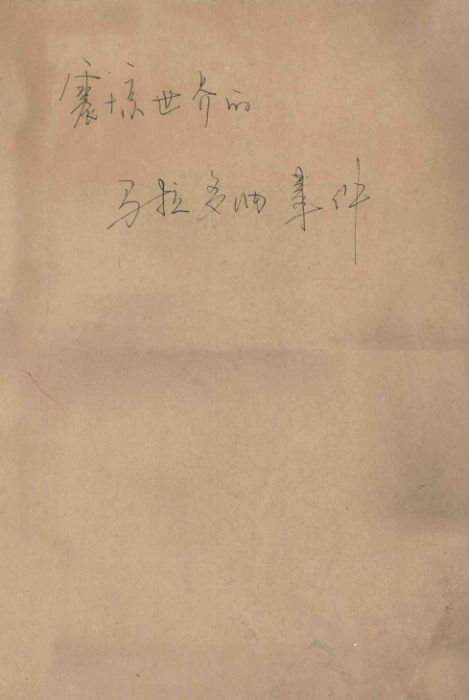 震惊世界的
马拉多纳事件